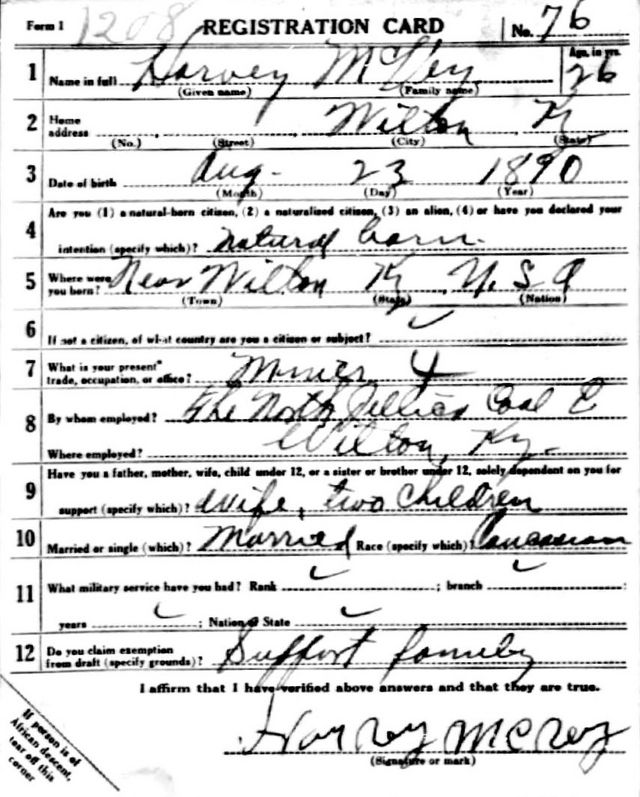 Form 1 1208 REGISTRATION CARD No. 76
1 Name in full Harvey Age, in yrs. 26
(Given name) (Family name)
2 Home address Wilton Ky
(No.) (Street) (City) (State)
3 Date of birth Aug. 23 1890
(Month) (Day) (Year)
4 Are you (1) a natural-born citizen, (2) a naturalized citizen, (3) an alien, (4) or have you declared your
intention (specify which)? Natural born.
5 Where were you born? Near Wilton Ky U.S.A
(Town) (State) (Nation)
6 If not a citizen, of what country are you a citizen or subject?
7 What is your present trade, occupation, or office? Miner 4
8 By whom employed? The North Jellico Coal C
Where employed? Wilton, Ky.
9 Have you a father, mother, wife, child under 12, or a sister or brother under 12, solely dependent on you for
support (specify which)? Wife, two Children
10 Married or single (which)? Married Race (specify which)? Caucasian
11 What military service have you had? Rank ; branch ;
years ; Nation or State
12 Do you claim exemption from draft (specify grounds)? Support family
I affirm that I have verified above answers and that they are true.
Harvey
(Signature or mark)
If person is of
African descent,
tear off this
corner